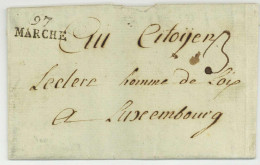 97
MARCHE
Au Citoyen
3
Leclerc homme de Loix
a Luxembourg